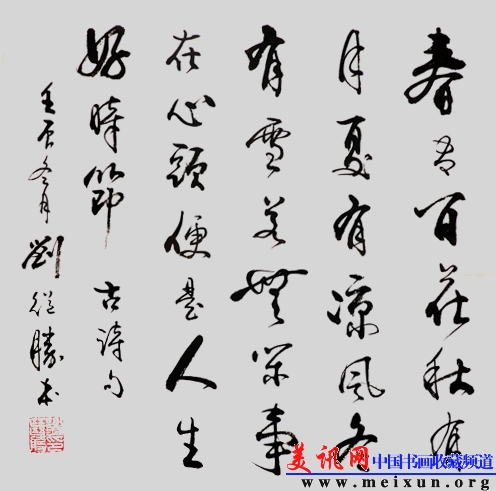 春有百花秋有
月夏有凉风冬
有雪若無閑事
在心頭便是人生
好時節 古詩句
壬辰冬月 劉從勝书
美讯网 中国书画收藏频道
www.meixun.org